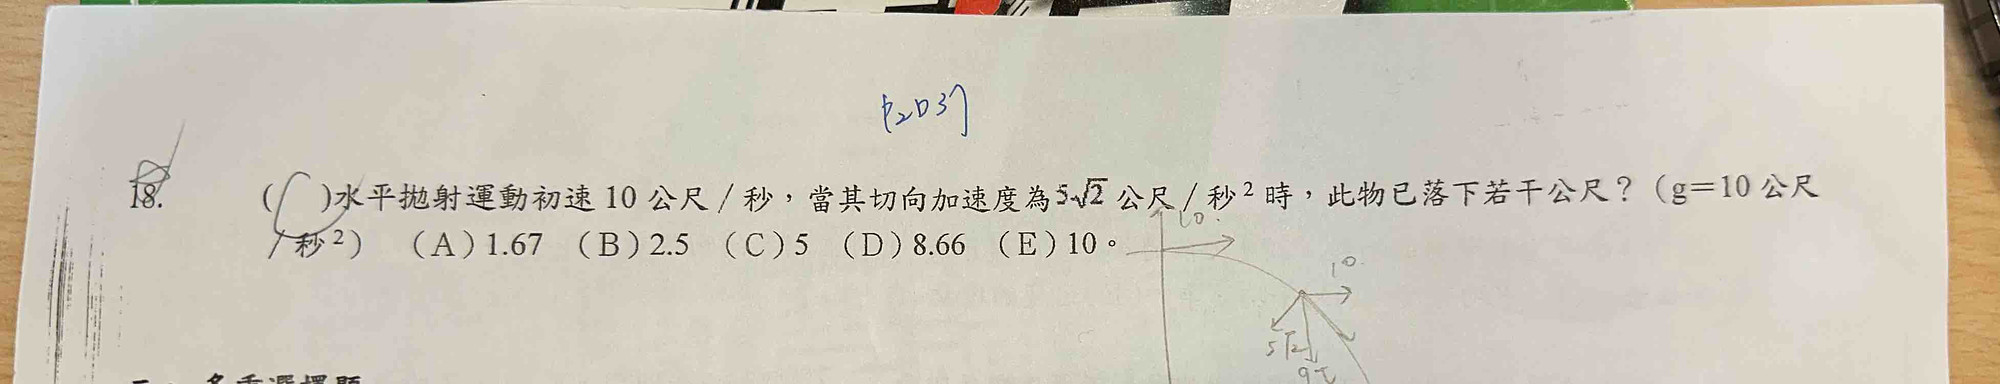 18. ( C )水平拋射運動初速 10 公尺／秒，當其切向加速度為 5√2 公尺／秒²時，此物已落下若干公尺？（g＝10 公尺
／秒²） （A）1.67 （B）2.5 （C）5 （D）8.66 （E）10。
10.
10
5√2
gt
二、多重選擇題